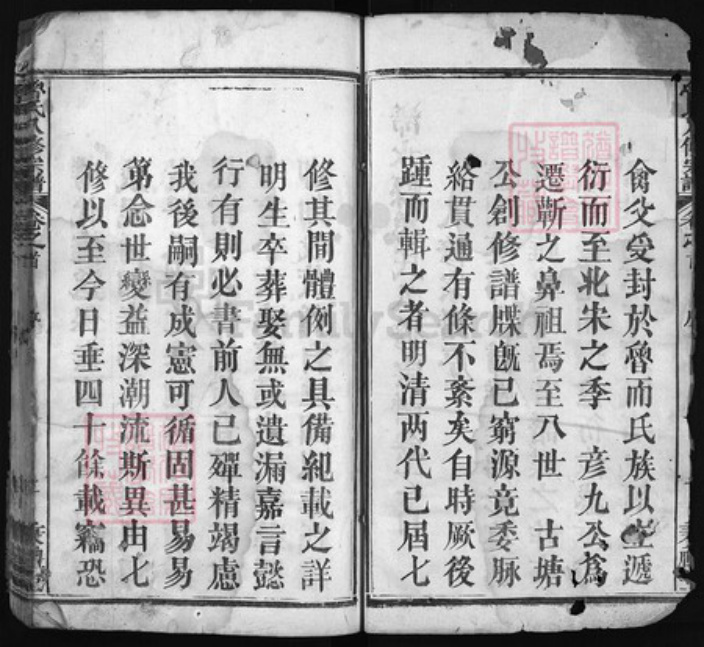 禽父受封於魯而氏族以
遞
衍而至北宋之季 彦九公爲
遷蘄之鼻祖焉至八世 古塘
公創修譜牒旣已窮源竟委脉
絡貫通有條不紊矣自時厥後
踵而輯之者明清两代已屆七
修其間體例之具備紀載之詳
明生卒葬娶無或遺漏嘉言懿
行有則必書前人已殫精竭慮
我後嗣有成憲可循固甚易易
第念世變益深潮流斯異由七
修以至今日垂四十餘載竊恐
氏八修宗譜 卷之首 序
FamilySearch